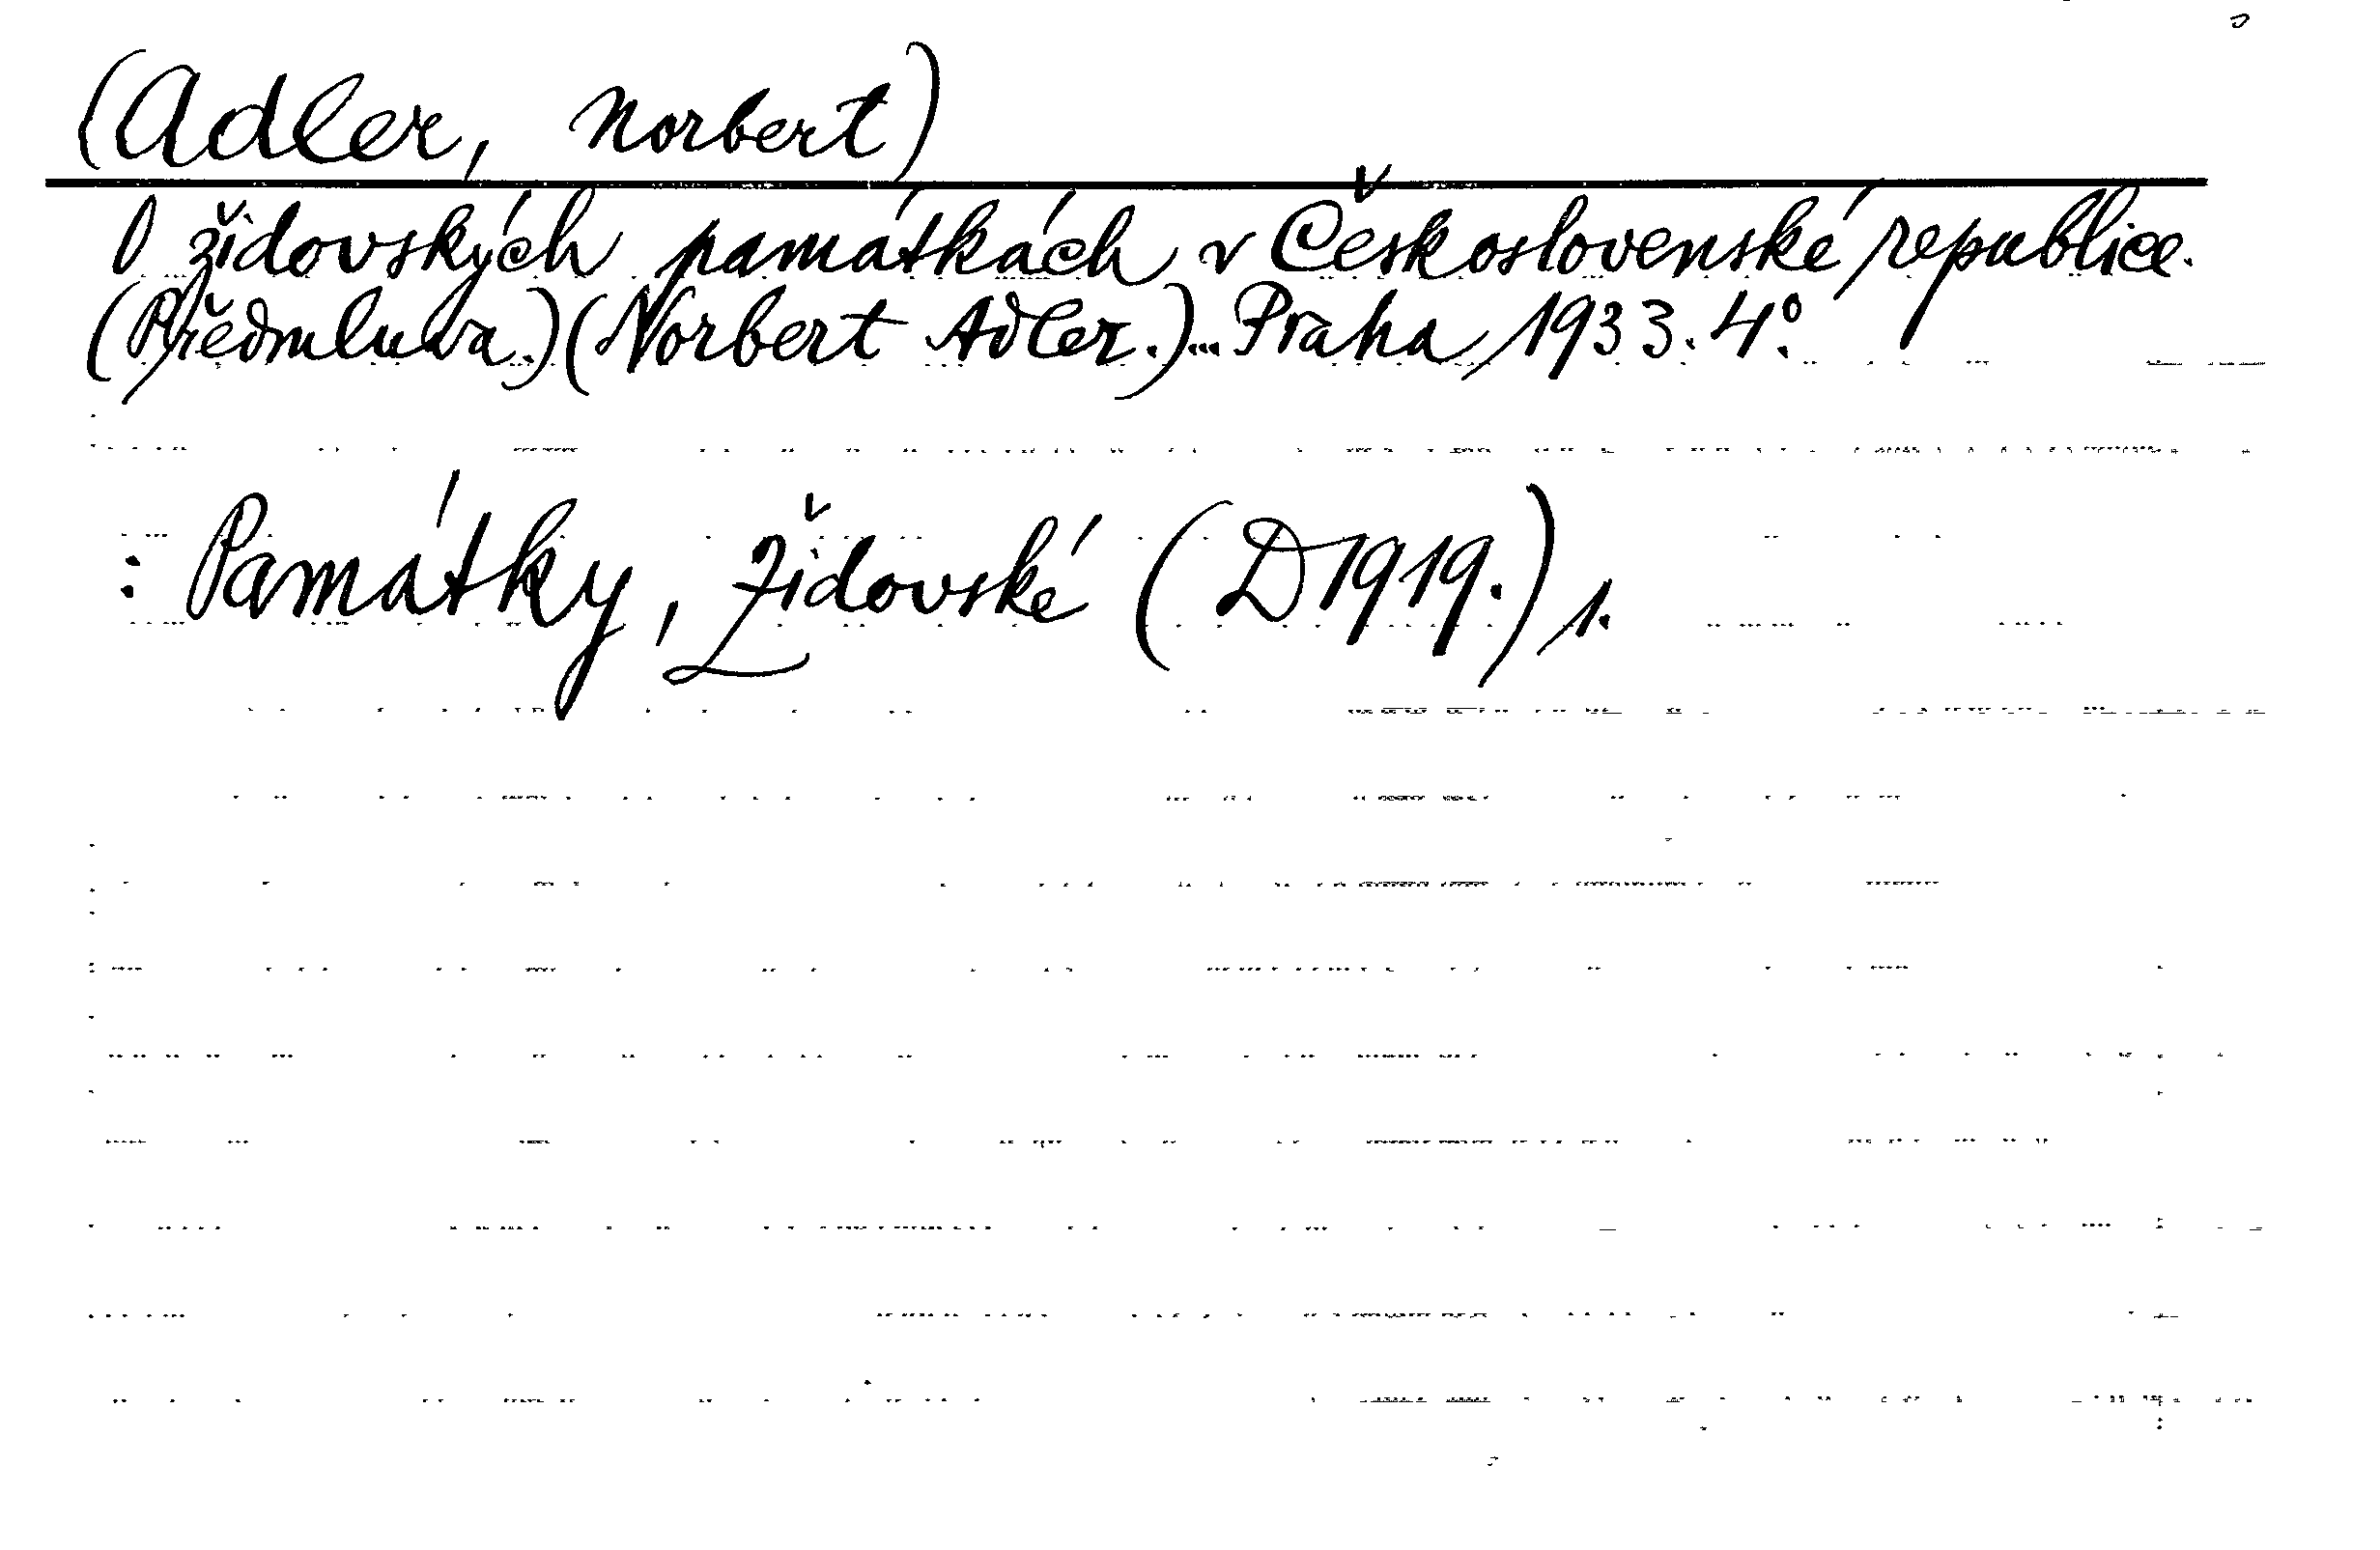 (Adler, Norbert)
O židovských památkách v Československé republice.
(Předmluva.) (Norbert Adler.)... Praha, 1933. 4°.
: Památky, židovské (D1919.) 1.